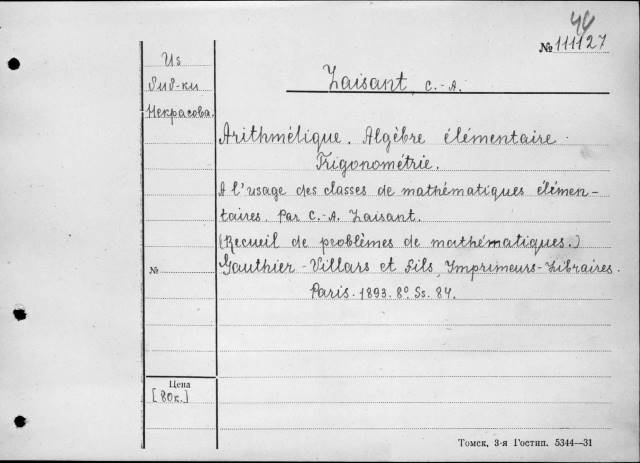 44
№ 111127
Из
биб-ки
Некрасова.
Laisant, C.-A.
Arithmétique. Algèbre élémentaire.
Trigonométrie.
A l'usage des classes de mathématiques élémen-
taires. Par C.-A. Laisant.
(Recueil de problèmes de mathématiques.)
№
Gauthier-Villars et Fils, Imprimeurs-Libraires.
Paris. 1893. 8°. Ss. 84.
Цена
[80к.]
Томск, 3-я Гостип. 5344—31